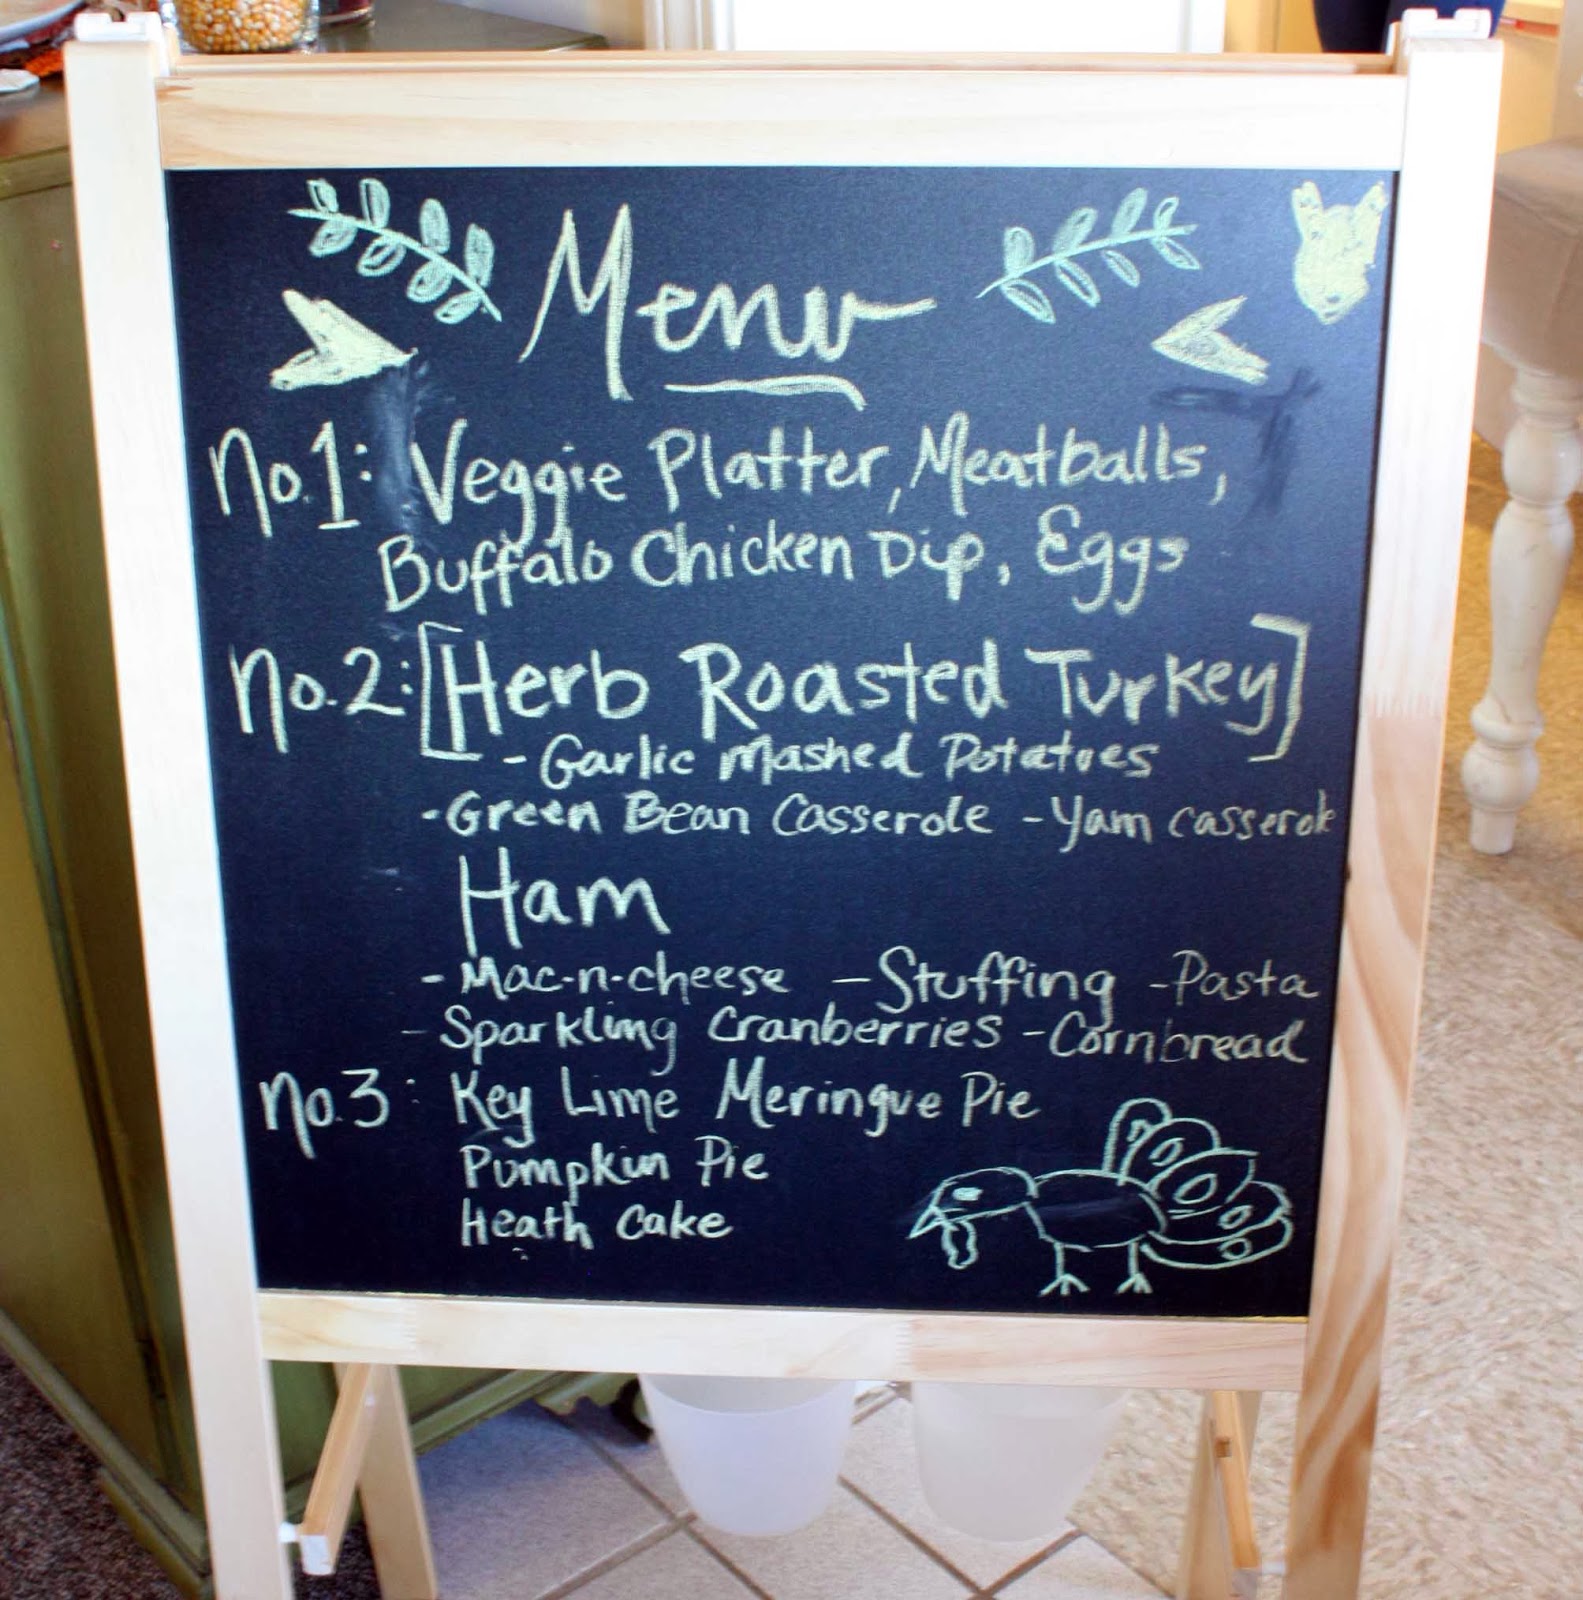 Menu
No.1: Veggie Platter, Meatballs,
Buffalo Chicken Dip, Eggs
No.2: [Herb Roasted Turkey]
- Garlic Mashed Potatoes
- Green Bean Casserole - Yam casserole
Ham
- Mac-n-cheese - Stuffing - Pasta
- Sparkling Cranberries - Cornbread
No.3: Key Lime Meringue Pie
Pumpkin Pie
Heath Cake